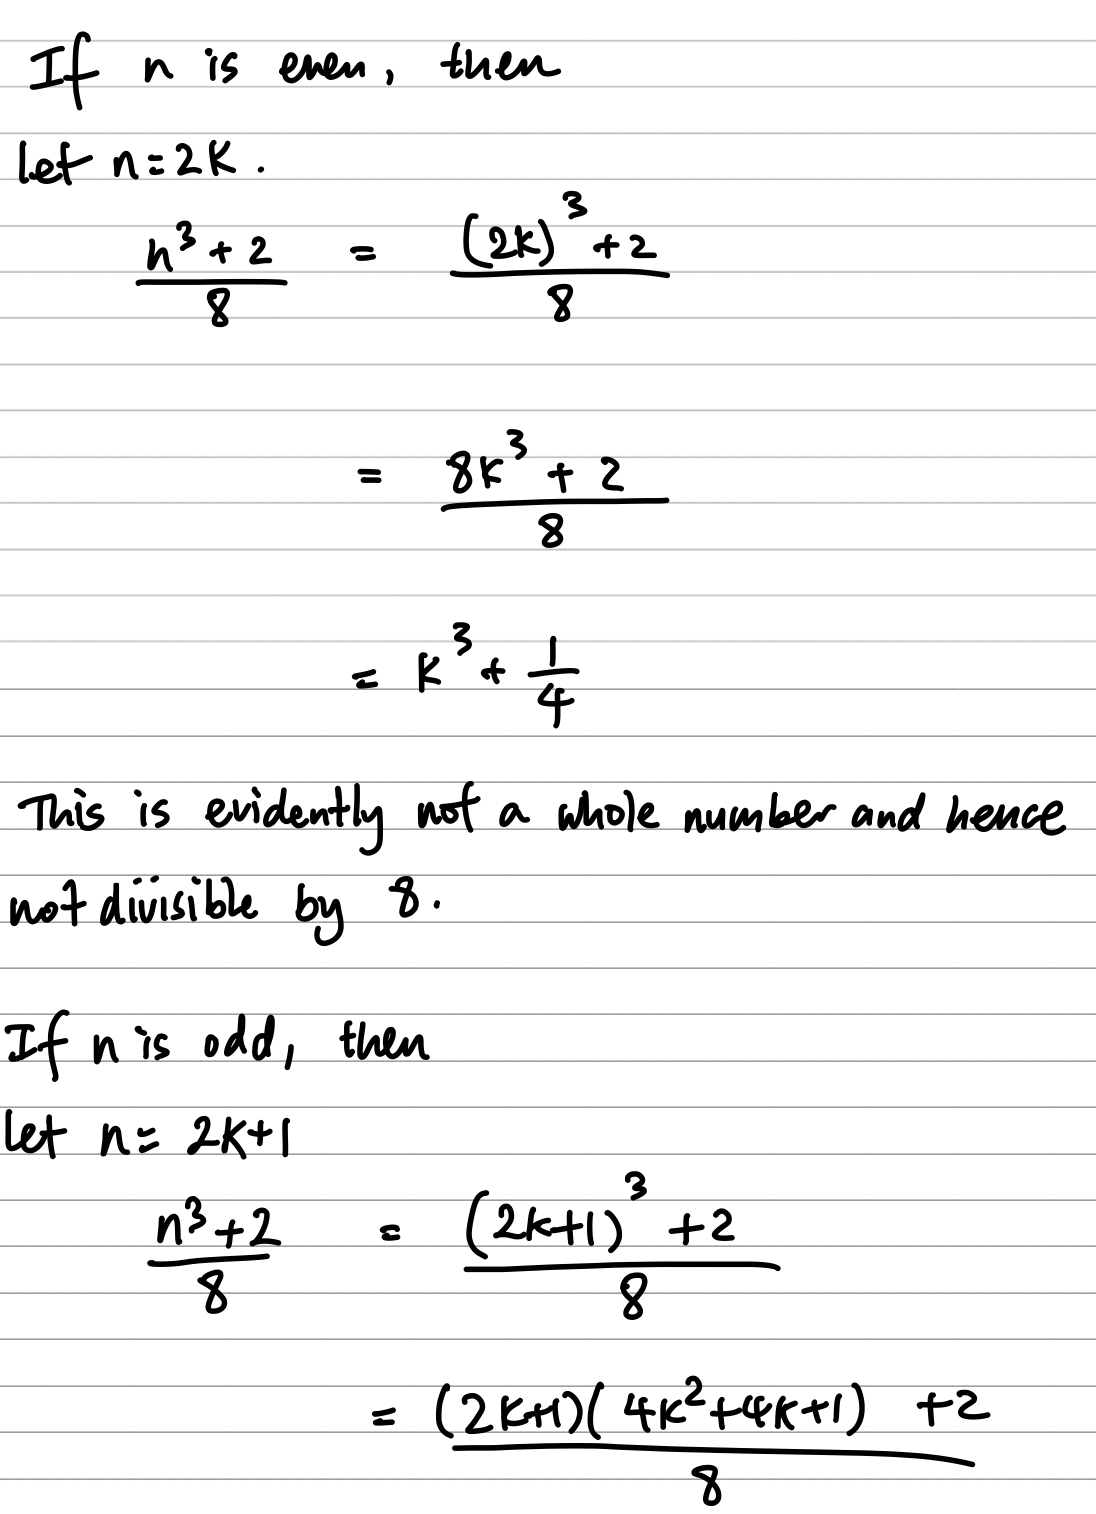 If n is even, then
let n=2k.
n³+2/8 = (2k)³+2/8
= 8k³+2/8
= k³+1/4
This is evidently not a whole number and hence
not divisible by 8.
If n is odd, then
let n= 2k+1
n³+2/8 = (2k+1)³+2/8
= (2k+1)(4k²+4k+1) +2/8